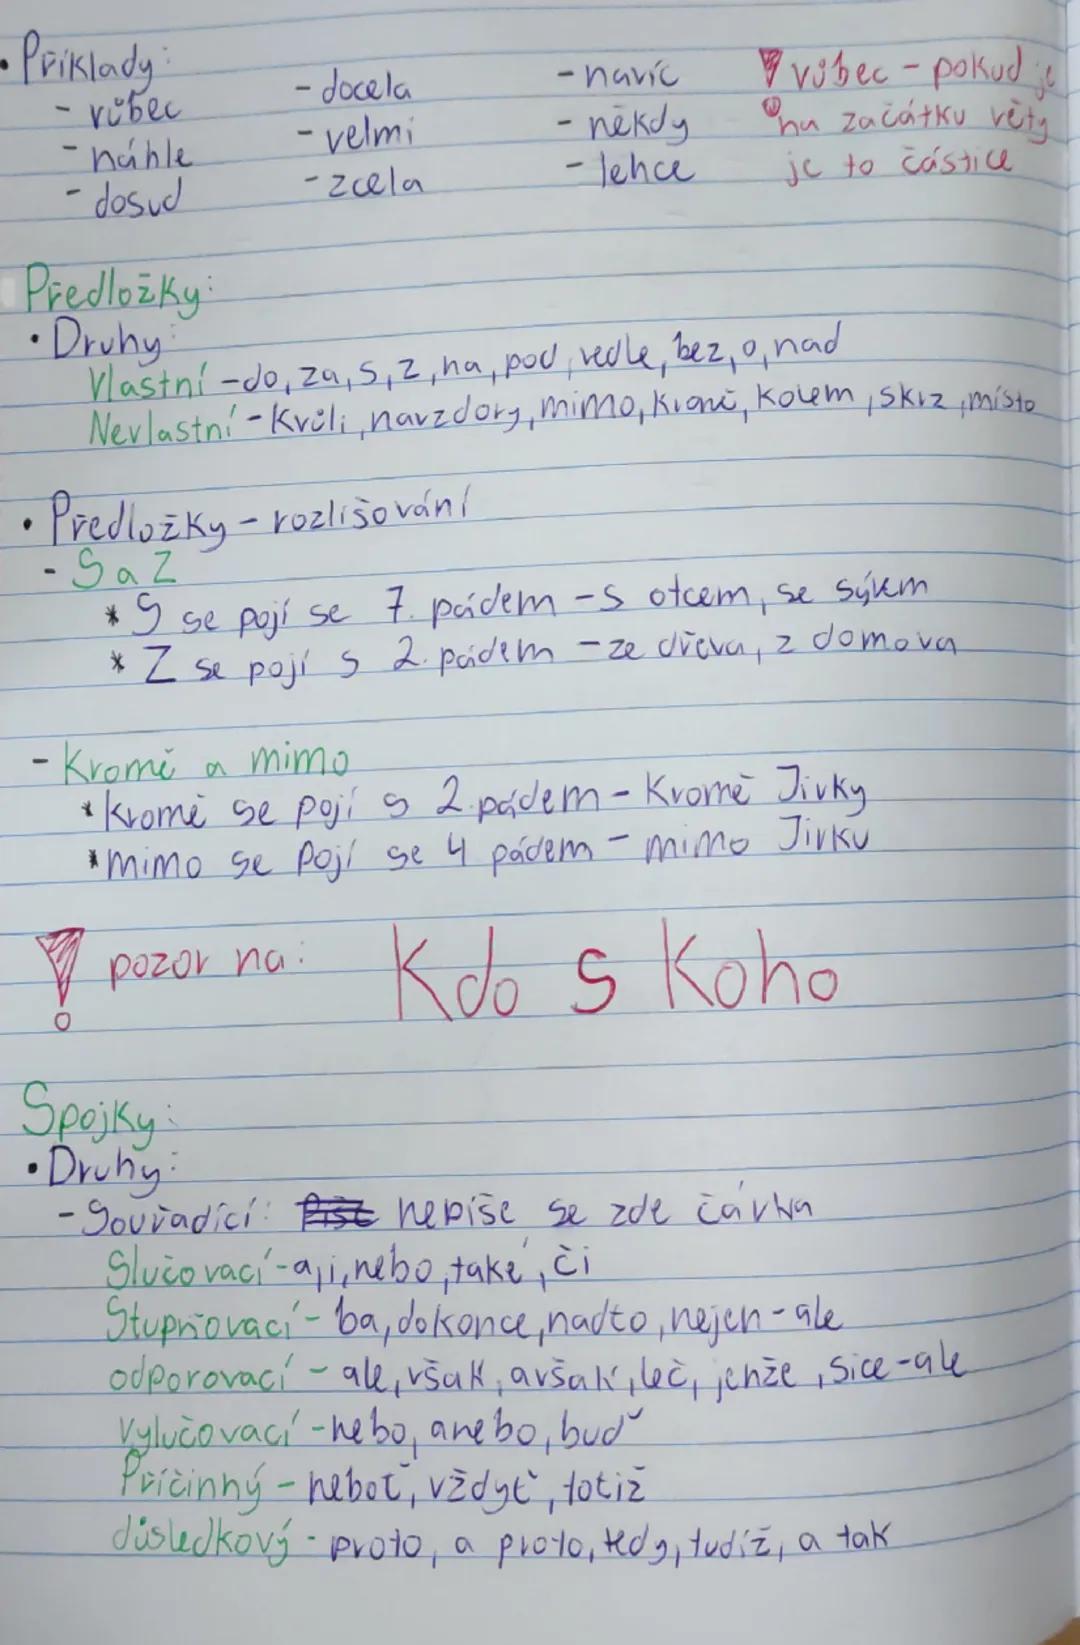 • Příklady:
- vůbec - docela - navíc ! vůbec - pokud je
- náhle - velmi - někdy na začátku věty
- dosud - zcela - lehce je to částice
Předložky:
• Druhy:
Vlastní - do, za, s, z, na, pod, vedle, bez, o, nad
Nevlastní - Kvůli, navzdory, mimo, kromě, kolem, skrz, místo
• Předložky - rozlišování
- S a Z
* S se pojí se 7. pádem - s otcem, se sýrem
* Z se pojí s 2. pádem - ze dřeva, z domova
- Kromě a mimo
* kromě se pojí s 2. pádem - Kromě Jirky
* mimo se pojí se 4 pádem - mimo Jirku
! pozor na: Kdo s Koho
Spojky:
• Druhy:
- Souřadící: nepíše se zde čárka
Slučovací - a, i, nebo, také, či
Stupňovací - ba, dokonce, nadto, nejen - ale
odporovací - ale, však, avšak, leč, jenže, sice - ale
Vylučovací - nebo, anebo, buď
Příčinný - neboť, vždyť, totiž
důsledkový - proto, a proto, tedy, tudíž, a tak